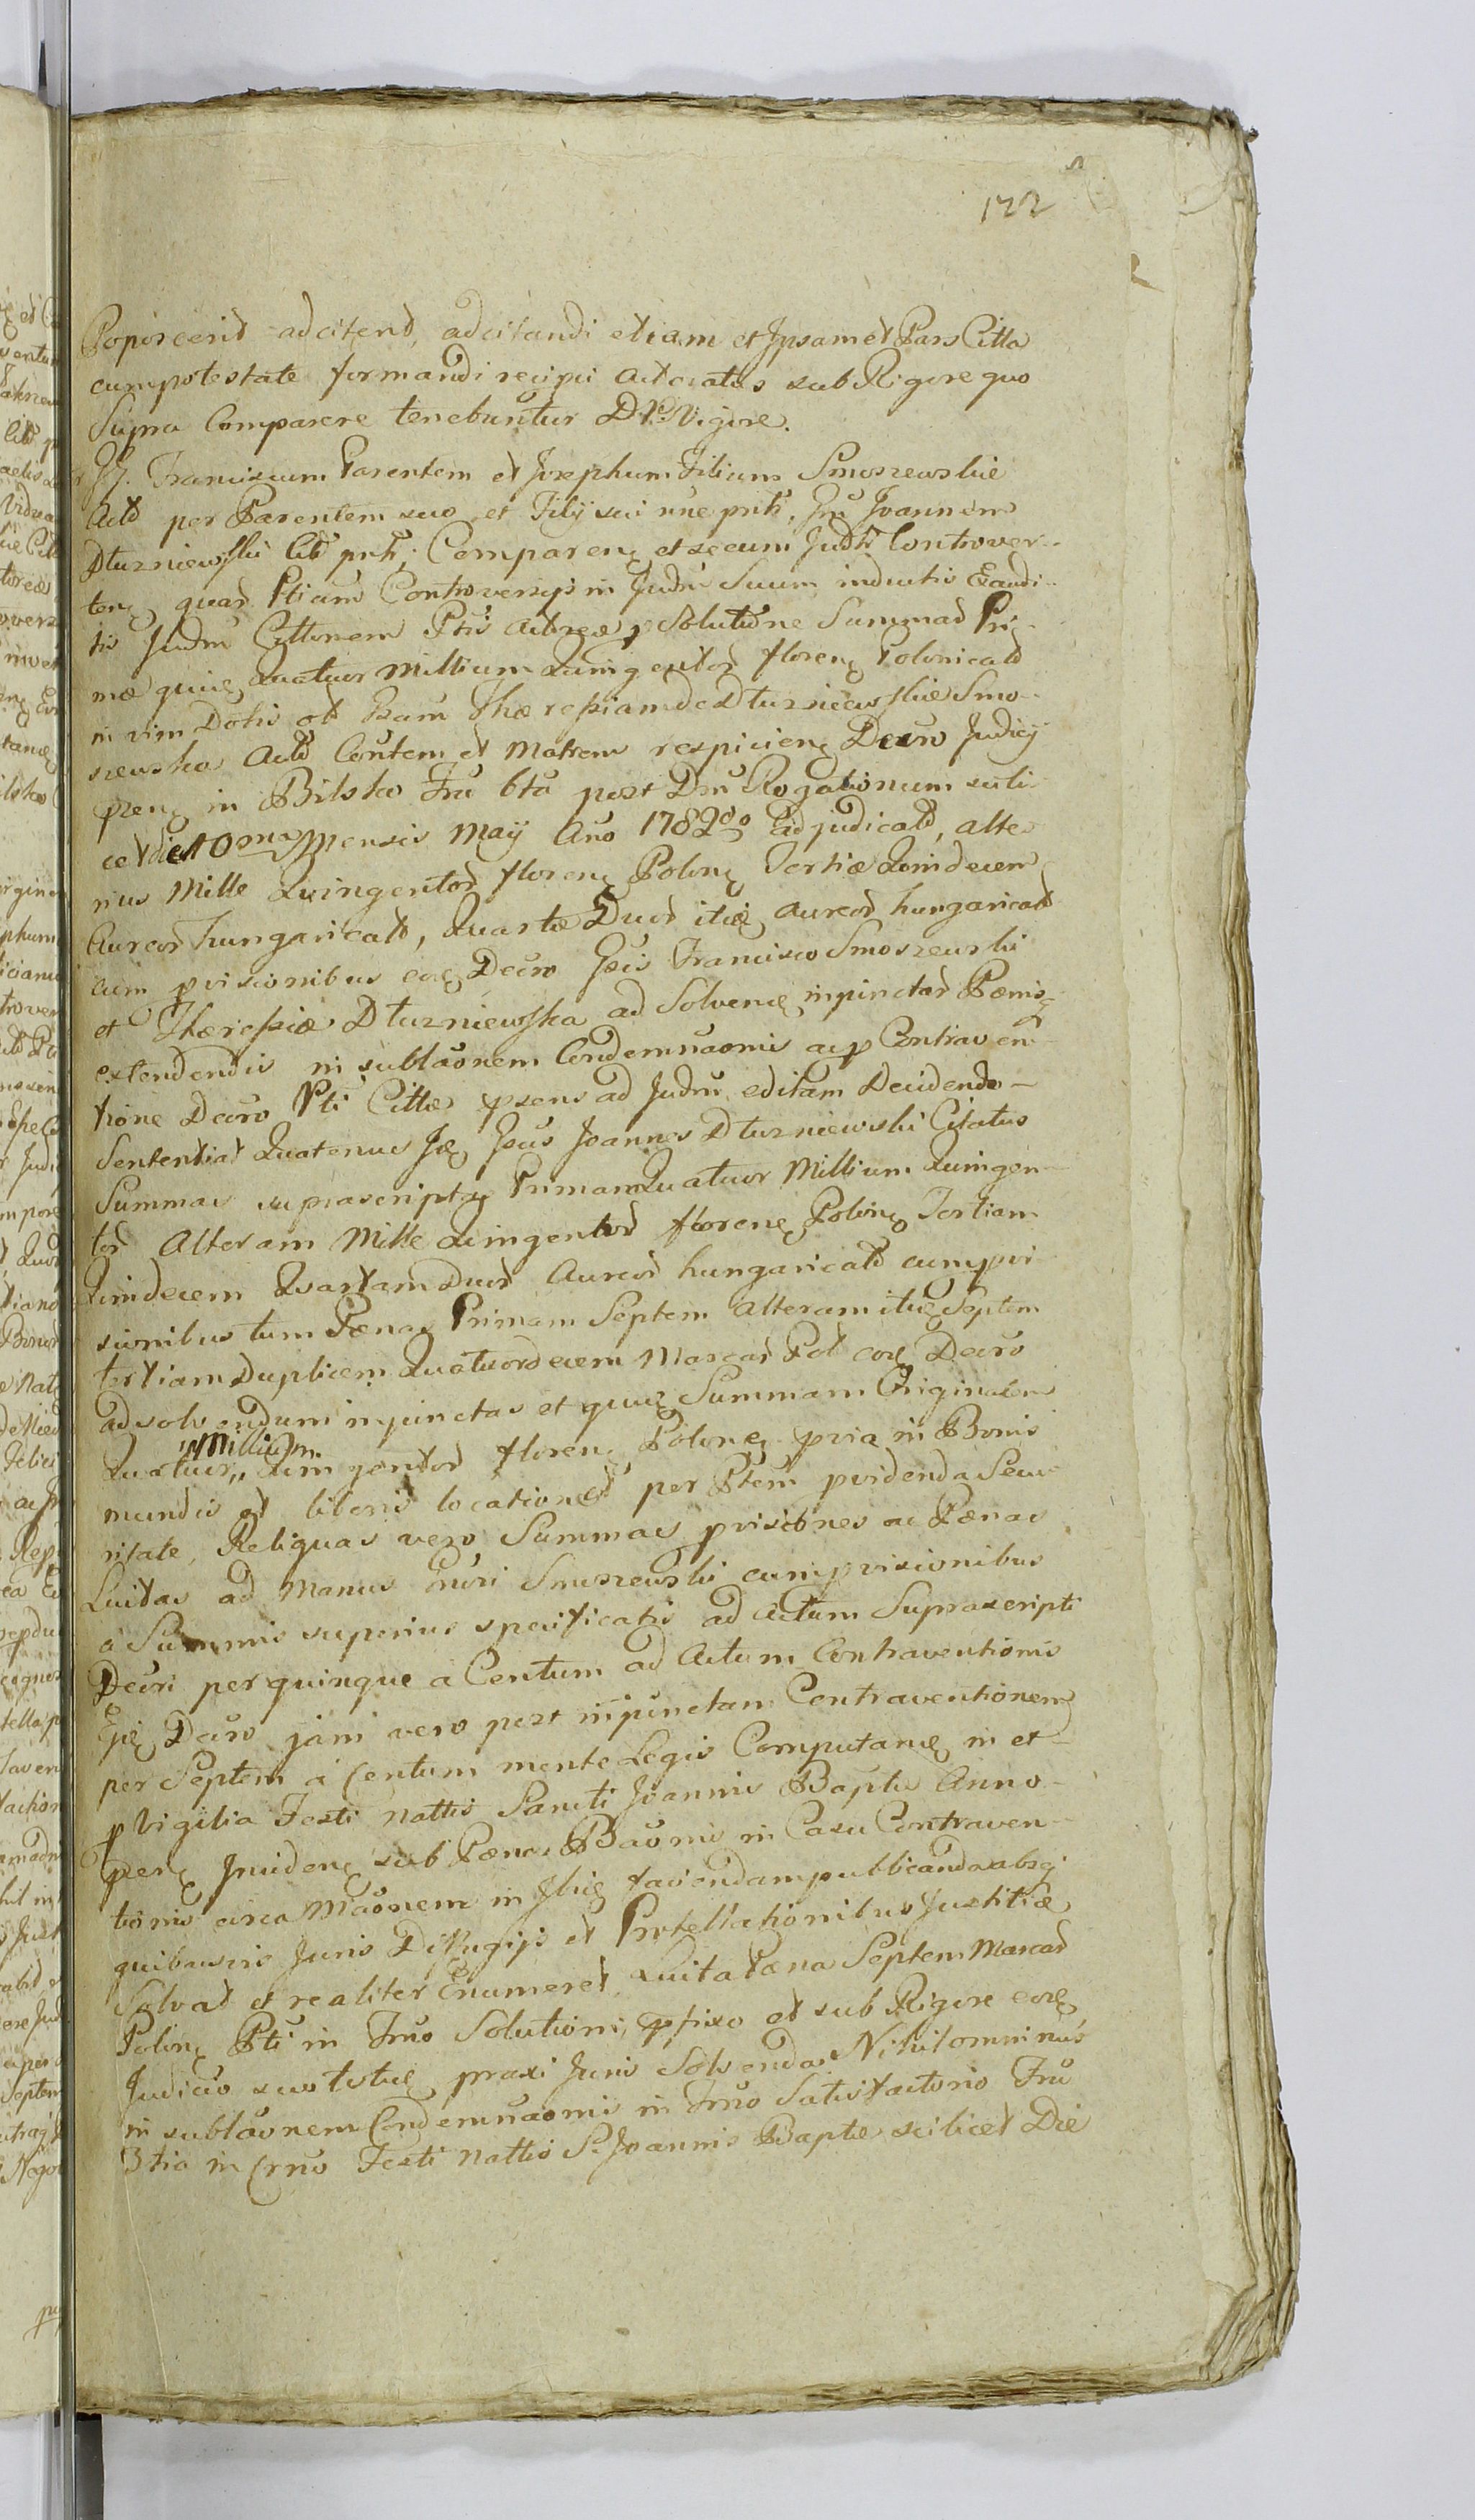 122
Poposcerit adcitend, adcitandi etiam et Ipsamet Pars Citta
cum potestate formandi recipii Actoratus sub Rigore quo
Supra Comparere tenebuntur D. Vigore.
Franciscum Parentem et Josephum Filium Smoszewskie
Actd per Parentem suo et Filij sui nne pnt, Joannem
Dłuzniewski Citd pnt, Comparen et secum Judtr Controver-
ten quar Ptium Controversijs in Judm Suum inductis Exaudi-
tis Judm Cittonem Ptis Actoreæ p Solutione Summar Pri-
mæ quiq Quatuor Millium Quingentor floren Polonicald
in vim Dotis ob Gsam Theresiam de Dłuzniewskie Smo-
szewska Actd Contem et Matrem respicien Decro Judicij
pren in Bilsko Fru 6ta post Dm Rogationum scili-
cet die 10ma Mensis Maij Ano 1782do adjudicatd, alte
rius Mille Quingentor floren Polon Tertiæ Quindecem
Aureor hungaricald, Quartæ Duor itid aureor hungaricald
cum pvisionibus eoq Decro Gsis Francisco Smoszewski
et Theresiæ Dłuzniewska ad Solvend injunctar Pænis
extendendis in sublaonem Condemnaonis ac p Contraven-
tione Decro Pti Cittæ psens ad Judm editam Decidendo
Sententiat Quatenus Gsus Joannes Dłuzniewski Citatus
Summas suprascriptas Primam Quatuor Millium Quingen-
tor Alteram Mille Quingentor floren Polon Tertiam
Quindecem Quartam Duor Aureor hungaricald cum pvi
sionibus tum Pænas Primam Septem Alteram itid Septem
tertiam Duplicem Quatuordecem Marcar Pol eoq Decro
adsolvendum injunctas et quid Summam Originalem
Quatuor „Millium Quingentor floren Polon pvia in Bonis
mundis et liberis locatione per Ptem pvidenda Secu-
ritate, Reliquas vero Summas pvisiones ac Pænas
Luitas ad Manus Smoszewski cum pvisionibus
a Summis superius specificatis ad Actum Suprascripti
Decri per quinque a Centum ad Actum Contraventionis
Decro jam vero post injunctam Contraventionem
per Septem a Centum mente Legis Computand in et
p Vigilia Festi Nattis Sancti Joannis Baptæ Anno
pen Inciden sub Pæna Baonis in Casu Contraven-
tionis circa Maonem in faciendam publicanda absq
quibusvis Juris Diffugijs et Protellationibus Justitiæ
Solvat et realiter Enumeret Luita Pæna Septem Marcar
Polon Pti in Trno Solutioni pfixo et sub Rigore eoq
Judicio suo praxi Juris Solvenda Nihilominus
in sublaonem Condemnaonis in Trno Satisfactorio Fru
3tia in Crno Festi Nattis S. Joannis Baptæ scilicet Die